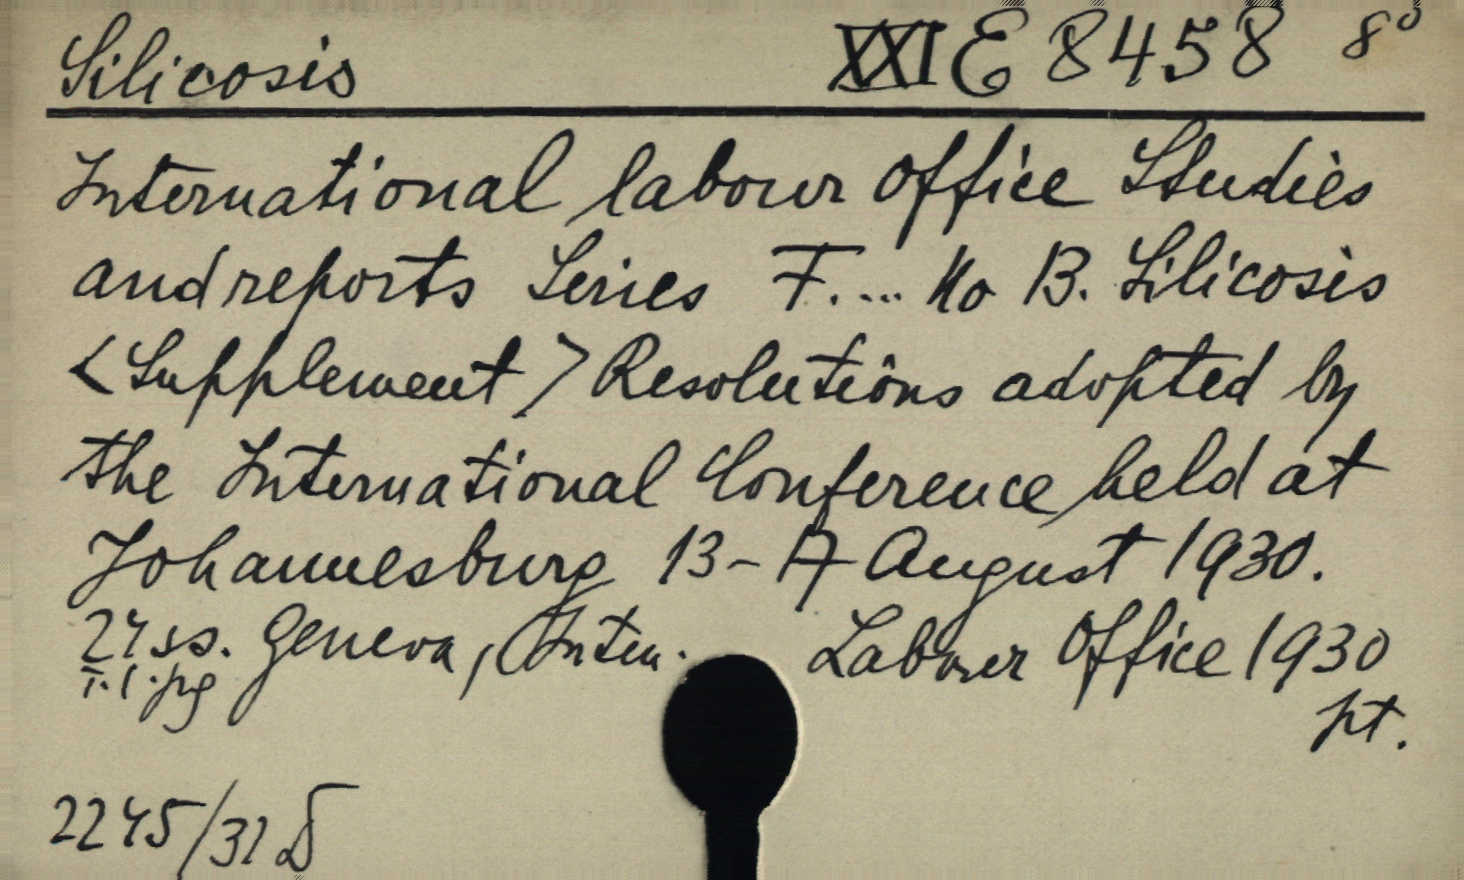 Silicosis XXI E 8458 8°
International labour Office Studies
and reports Series F.... No 13. Silicosis
<Supplement> Resolutions adopted by
the International Conference held at
Johannesburg 13-17 August 1930.
Geneva, (Intern. Labour Office 1930
pt.